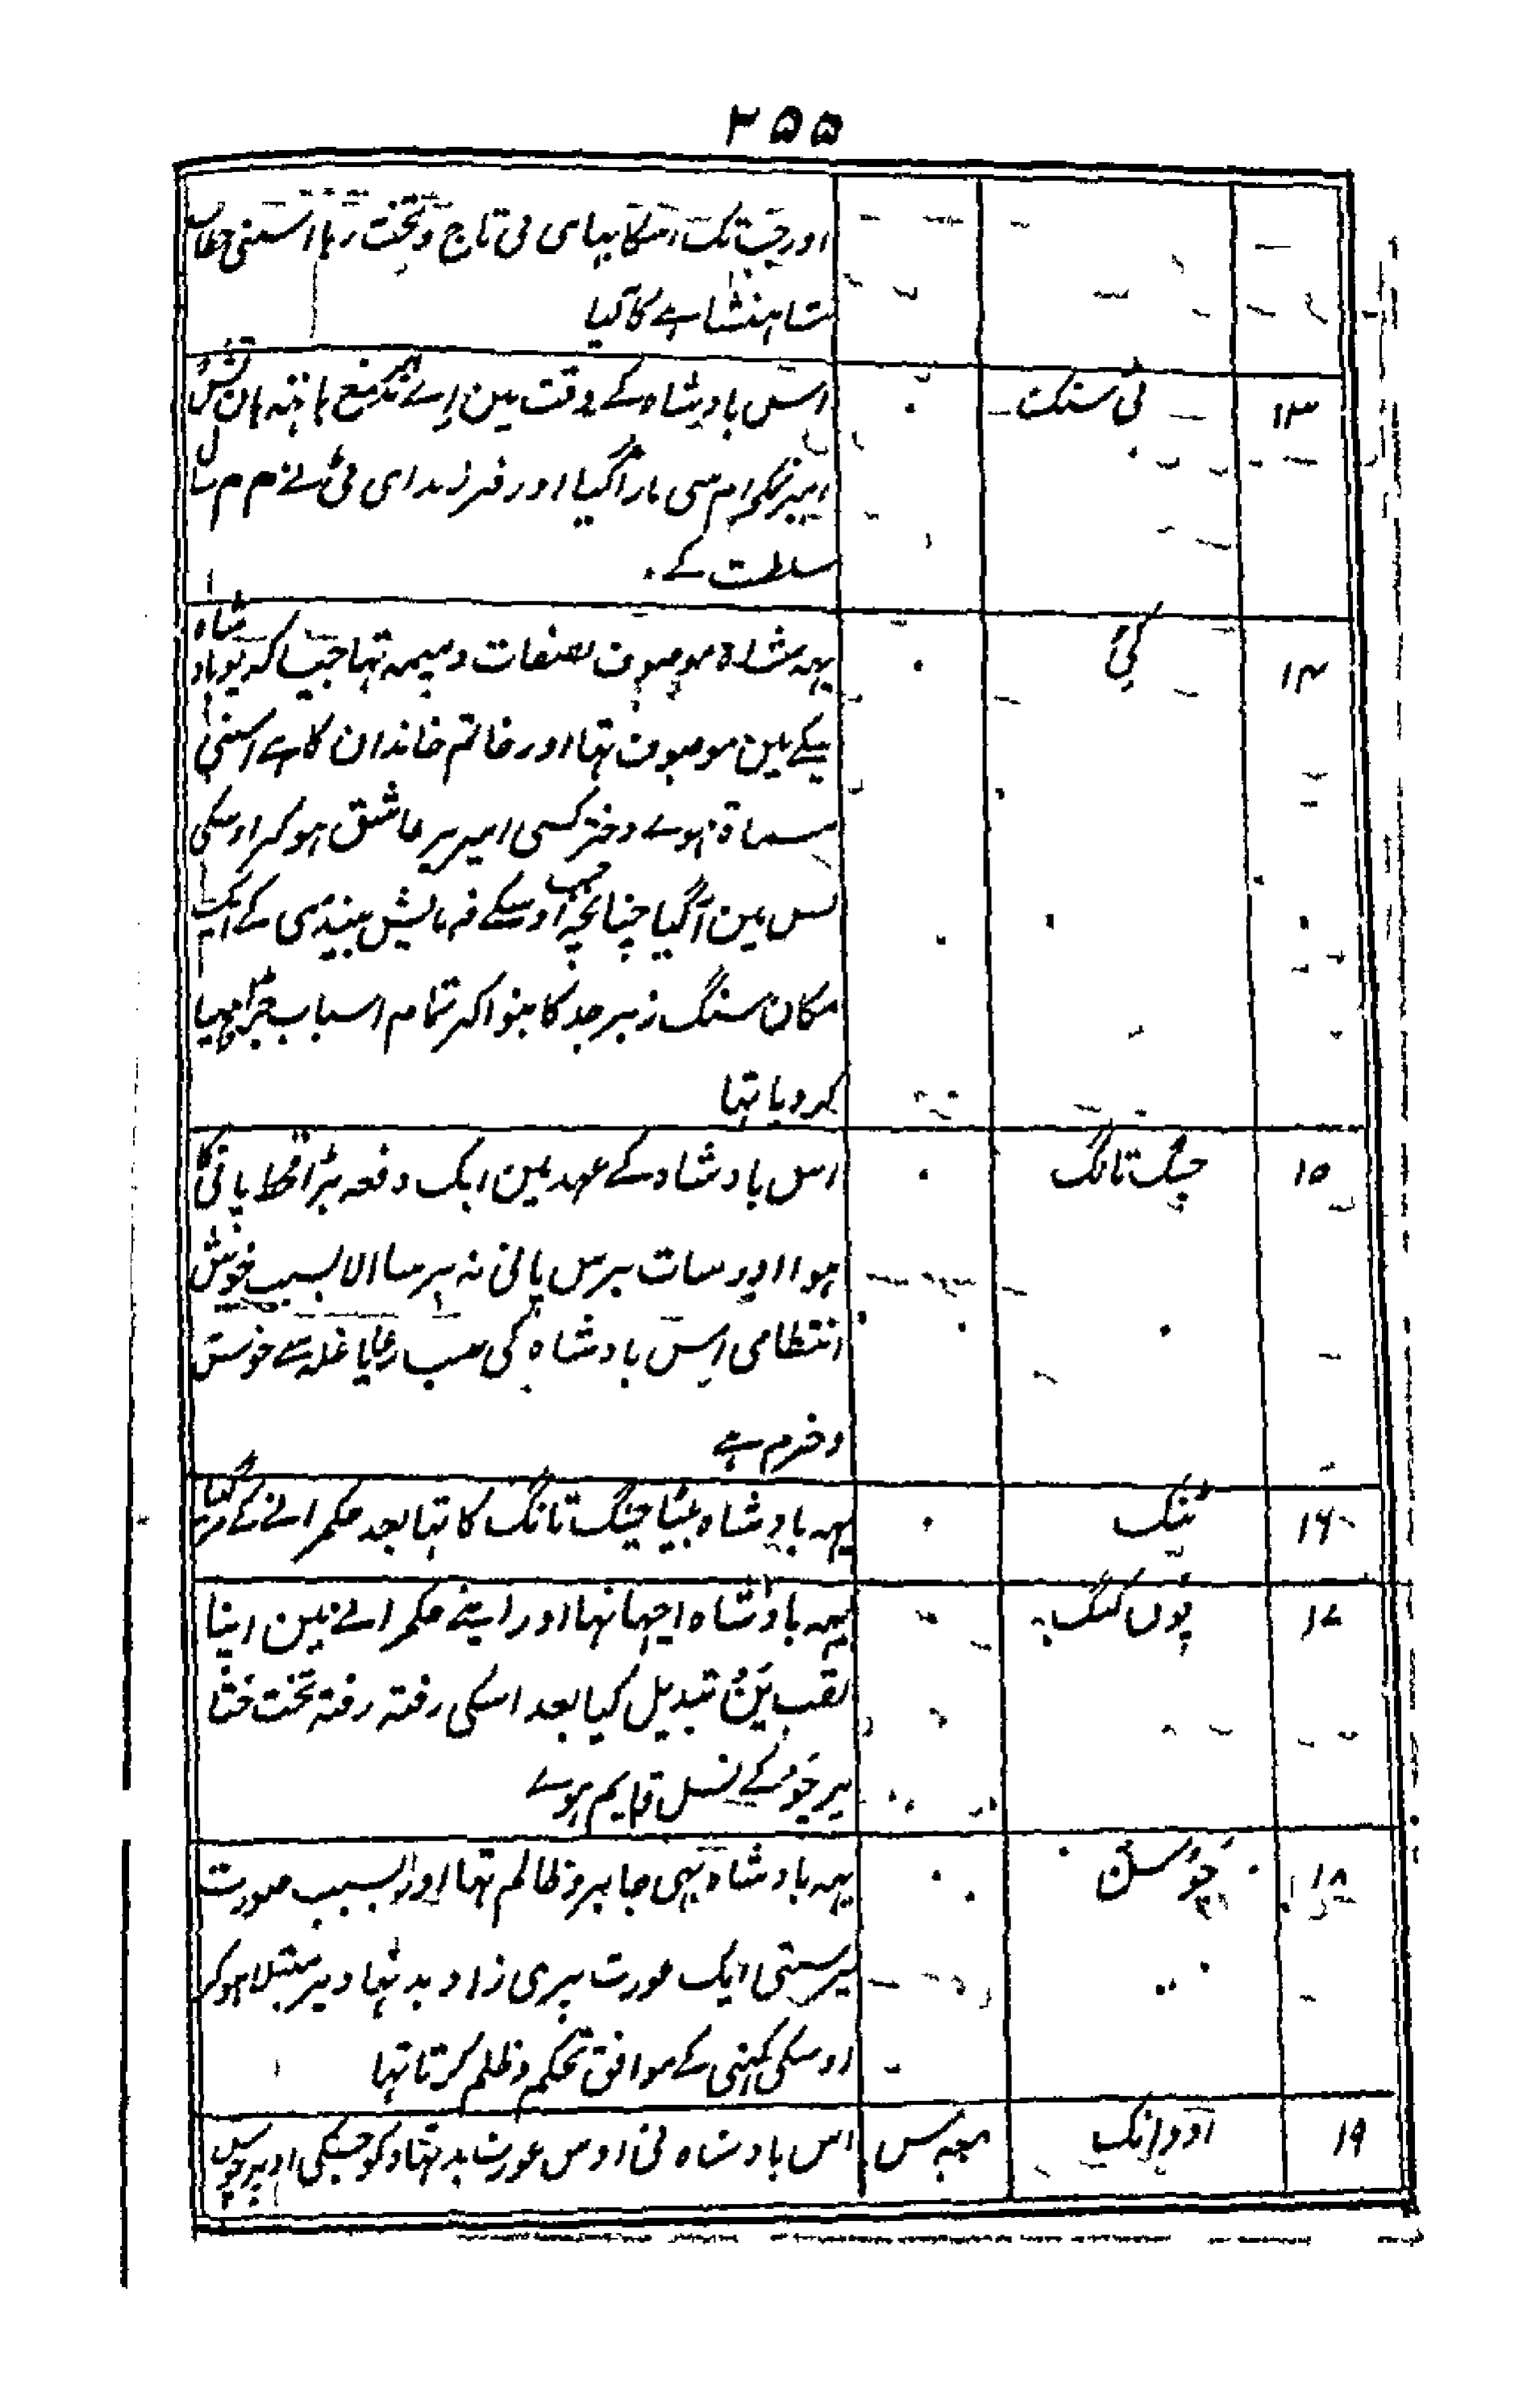 ۲۵۵
اور جب تک اسکا بہای بی تاج و تخت رہا اسنی خطاب
شاہنشاہے کا کیا
۱۳ ٹی سنک ۰ اس بادشاہ کے وقت مین
امیر نمکحرام سی مارا گیا اور
سلطنت کے
۱۴ کی ۰ یہہ شاہ موصوف بصفات ذمیمہ تہا جیسا کہ یو بادشاہ
نیکے مین موصوف تہا اور خاتم خاندان کا ہے اسنی
مسماۃ ہوے دختر کسی امیر پر عاشق ہو کر اوسکی
بس مین آگیا چنانچہ حسب اوسکے فرمایش بیندی کے ایک
مکان سنگ زبرجد کا بنوا کر تمام اسباب مہیا
کر دیا تہا
۱۵ چنگ تانگ ۰ اس بادشاہ کے عہد مین ایک دفعہ بڑا قحط پانی کا
ہوا اور سات برس پانی نہ برسا الا بسبب خوش
انتظامی اس بادشاہ کی سب رعایا غلہ سے خوش
و خرم ہے
۱۶ ٹنگ ۰ یہہ بادشاہ بیٹا چنگ تانگ کا تہا بعد حکمرانے کے مر گیا
۱۷ پون کنگ یہہ بادشاہ اچہا تہا اور اپنے حکمرانے مین اپنا
لقب ین تبدیل کیا بعد اسکی رفتہ رفتہ تخت ختا
پر چو کے نسل قایم ہوے
۱۸ چو سن ۰ یہہ بادشاہ بہی جابر و ظالم تہا اور بسبب صورت
پرستی ایک عورت پری زاد بد نہاد پر مبتلا ہو کر
اوسکی کہنی کے موافق تحکم و ظلم کرتا تہا
۱۹ اووانگ اس بادشاہ نی اوس عورت بد نہاد کو جسکی اوپر چوسن